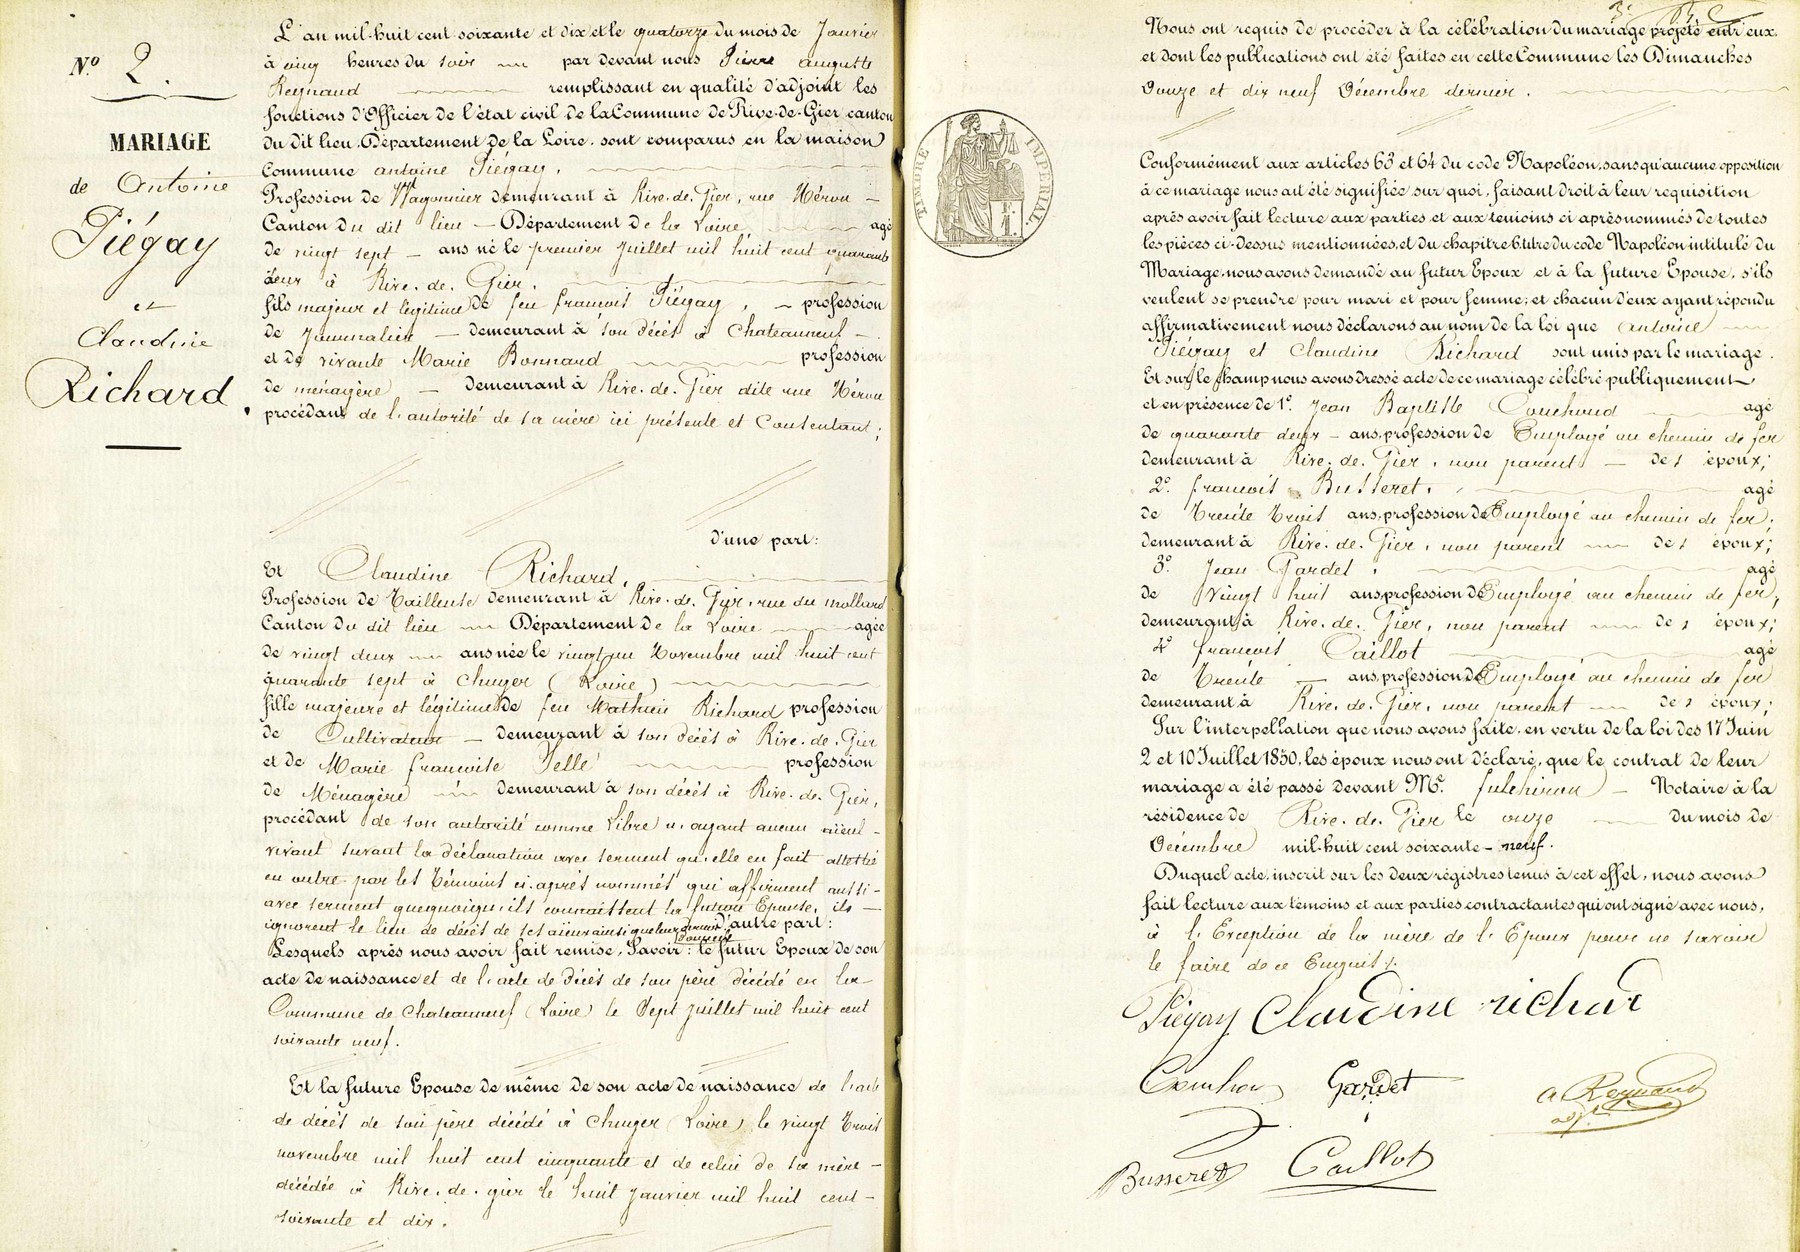 N.º 2.
MARIAGE
de Antoine
Piégay
et
Claudine
Richard.
L'an mil-huit cent soixante et dix et le quatorze du mois de Janvier
à cinq heures du soir par devant nous Pierre auguste
Reynaud remplissant en qualité d'adjoint les
fonctions d'Officier de l'état civil de la Commune de Rive-de-Gier canton
du dit lieu, Département de la Loire, sont comparus en la maison
Commune antoine Piégay,
Profession de Wagonnier demeurant à Rive.de.Gier, rue Héron
Canton du dit lieu — Département de la Loire, agé
de vingt sept — ans né le premier Juillet mil huit cent quarante
deux à Rive.de.Gier.
fils majeur et légitime de feu francois Piégay, profession
de Journalier — demeurant à son décès à Chateauneuf
et de vivante Marie Bonnard profession
de ménagère — demeurant à Rive.de.Gier dite rue Héron
procédant de l'autorité de sa mère ici présente et Consentant;
d'une part:
Et Claudine Richard,
Profession de Tailleuse demeurant à Rive.de.Gier, rue du mollard
Canton du dit lieu Département de la Loire agée
de vingt deux ans née le vingt un Novembre mil huit cent
quarante sept à Chuyer (Loire)
fille majeure et légitime de feu Mathieu Richard profession
de Cultivateur — demeurant à son décès à Rive.de.Gier
et de Marie francoise Sellé profession
de Ménagère demeurant à son décès à Rive.de.Gier,
procédant de son autorité comme Libre n'ayant aucun aïeul
vivant suvant la déclaration avec serment qu'elle en fait attesté
en outre par les témoins ci.après nommés qui affirment aussi
avec serment que quoique ils connaissent la future Epouse, ils
ignorent le lieu de décès de ses aïeux ainsi que leur dernier domicile d'autre part:
Lesquels après nous avoir fait remise, Savoir: le futur Epoux de son
acte de naissance et de l'acte de Décès de son père décédé en la
Commune de Chateauneuf (Loire) le Sept Juillet mil huit cent
soixante neuf.
Et la future Epouse de même de son acte de naissance de l'acte
de décès de son père décédé à Chuyer (Loire) le vingt trois
novembre mil huit cent cinquante et de celui de sa mère
décédée à Rive.de.gier le huit Janvier mil huit cent
soixante et dix.
Nous ont requis de procéder à la célébration du mariage projeté entr'eux,
et dont les publications ont été faites en cette Commune les Dimanches
Douze et dix neuf Décembre dernier.
TIMBRE IMPÉRIAL.
Conformément aux articles 63 et 64 du code Napoléon, sans qu'aucune opposition
à ce mariage nous ait été signifiée sur quoi, faisant droit à leur requisition
après avoir fait lecture aux parties et aux temoins ci après nommés de toutes
les pièces ci-dessus mentionnées, et du chapitre 6 titre du code Napoléon intitulé du
Mariage, nous avons demandé au futur Epoux et à la future Epouse, s'ils
veulent se prendre pour mari et pour femme; et chacun d'eux ayant répondu
affirmativement nous déclarons au nom de la loi que antoine
Piégay et Claudine Richard sont unis par le mariage.
Et sur le champ nous avons dressé acte de ce mariage célébré publiquement
et en présence de 1º. Jean Baptiste Couchoud agé
de quarante deux — ans, profession de Employé au chemin de fer
demeurant à Rive.de.Gier, non parent — des époux;
2º. francois Busseret, agé
de Trente trois ans, profession de Employé au chemin de fer;
demeurant à Rive.de.Gier, non parent des époux;
3º Jean Gardet, agé
de Vingt huit ans, profession de Employé au chemin de fer,
demeurant à Rive.de.Gier, non parent des époux;
4º francois Caillot agé
de Trente — ans, profession de Employé au chemin de fer
demeurant à Rive.de.Gier, non parent des époux;
Sur l'interpellation que nous avons faite, en vertu de la loi des 17 Juin
2 et 10 Juillet 1850, les époux nous ont déclaré, que le contrat de leur
mariage a été passé devant Me. fulchiron — Notaire à la
résidence de Rive.de.Gier le onze du mois de
Décembre mil-huit cent soixante-neuf.
Duquel acte, inscrit sur les deux régistres tenus à cet effet, nous avons
fait lecture aux témoins et aux parties contractantes qui ont signé avec nous,
à l'Exception de la mère de l'Epoux pour ne savoir
le faire de ce Enquis.
Piégay Claudine richard
Couchoud Gardet a Reynaud
adj.
Busseret Caillot